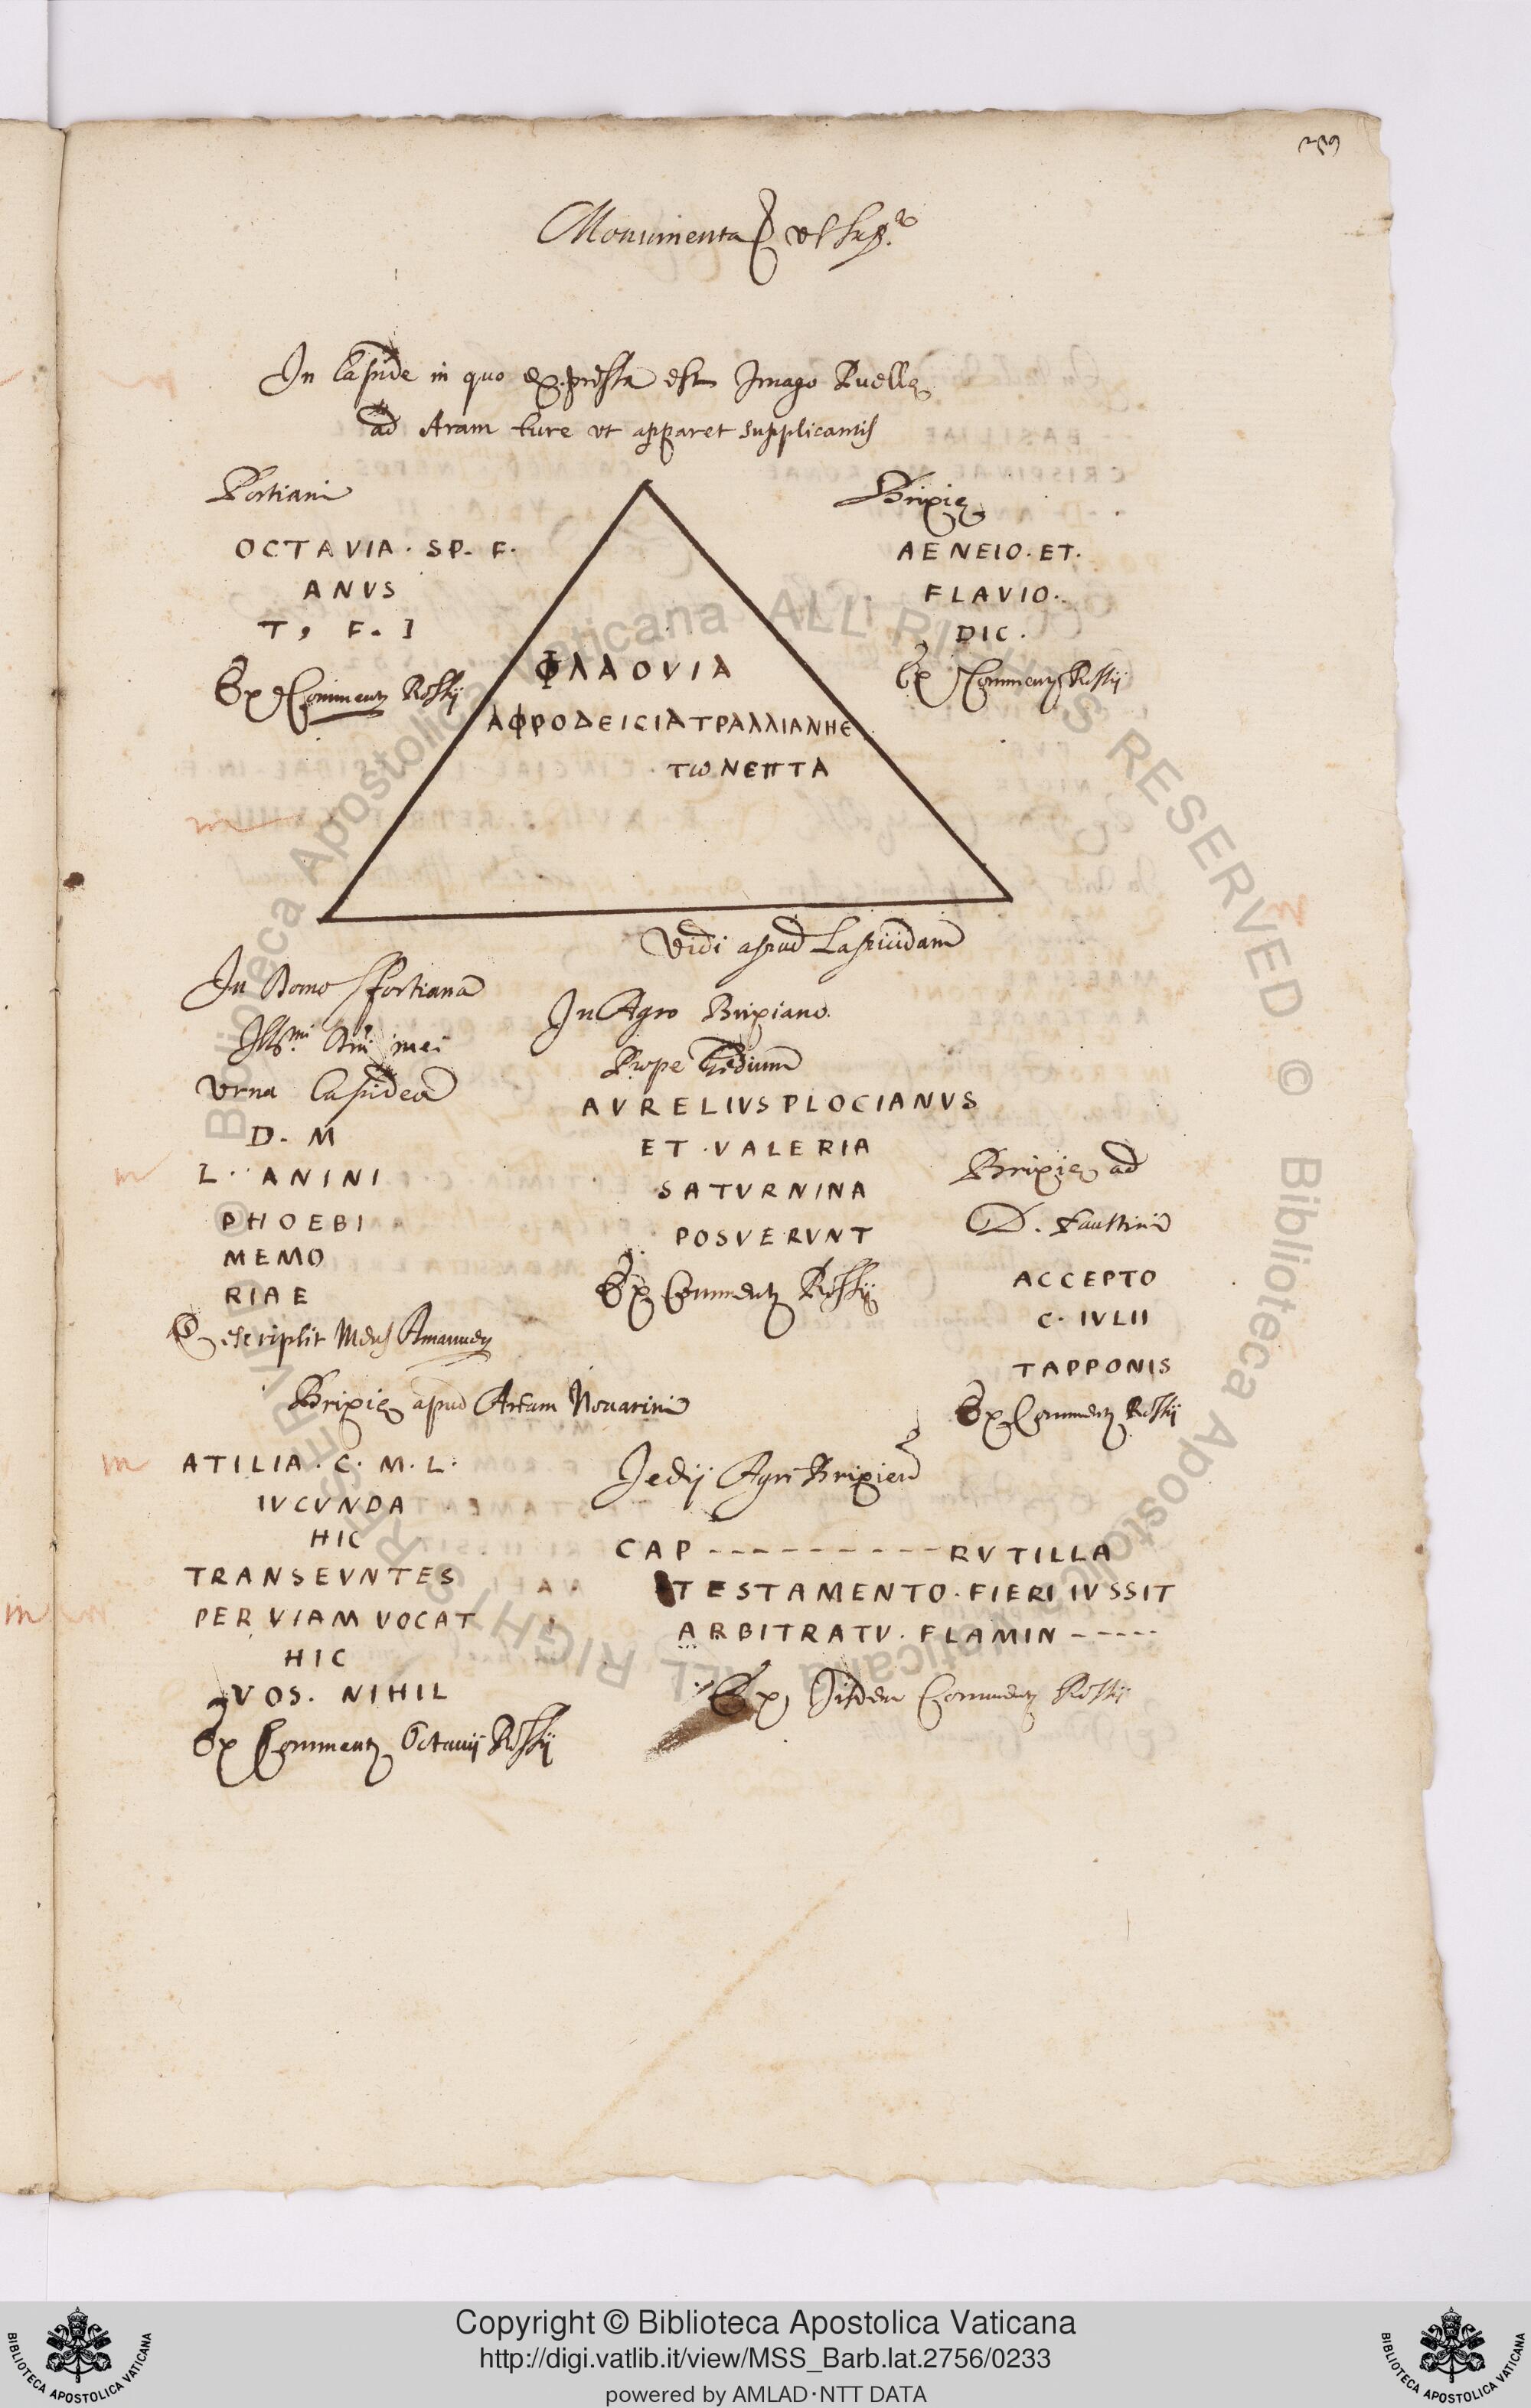 Monumenta
In Lapide in quo expressa est Imago Puellę
ad Aram ture vt apparet supplicantis
Portiani
OCTAVIA. SP. F.
ANVS
T, F. I
Ex Comment Rossij
Brixię
AENEIO. ET.
FLAVIO.
DIC.
Ex Comment Rossij
ΦΛΑΟVΙΑ
ΑΦΡΟΔΕΙCΙΑΤΡΑΛΛΙΑΝΗΕ
ΤωΝΕΠΤΑ
Vidi apud Lapicidam
In Domo Sfortiana
Illmi Dni mei
Vrna Lapidea
D. M
L. ANINI
PHOEBI
MEMO
RIAE
Descripsit Meus Amanuen
In Agro Brixiano
Prope Iedium
AVRELIVSPLOCIANVS
ET. VALERIA
SATVRNINA
POSVERVNT
Ex Comment Rossij
Brixię ad
D. Faustini
ACCEPTO
C. IVLII
TAPPONIS
Ex Comment Rossij
Brixię apud Novarini
ATILIA. C. M. L.
IVCVNDA
HIC
TRANSEVNTES
PER VIAM VOCAT
HIC
VOS. NIHIL
Ex Comment Octavij Rossij
Iedij Agri Brixien
CAP - - - - - - - - - RVTILLA
TESTAMENTO. FIERI IVSSIT
ARBITRATV. FLAMIN - - - - -
Ex Iisdem Comment Rossij
Copyright © Biblioteca Apostolica Vaticana
http://digi.vatlib.it/view/MSS_Barb.lat.2756/0233
powered by AMLAD·NTT DATA
BIBLIOTECA APOSTOLICA VATICANA
BIBLIOTECA APOSTOLICA VATICANA